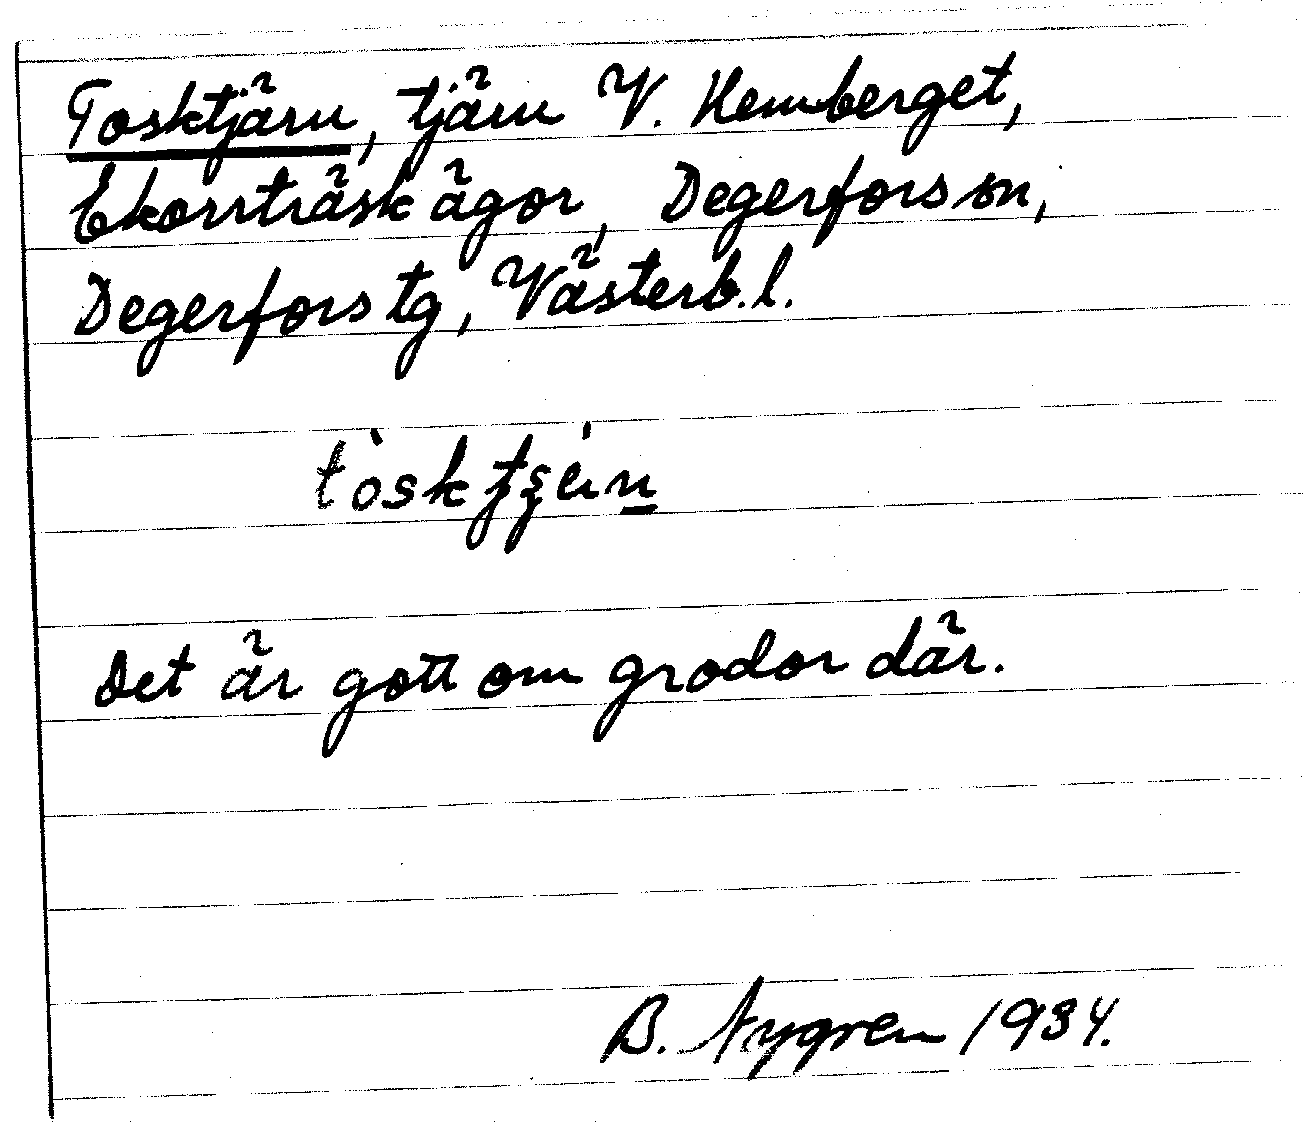 Tosktjärn, tjärn V. Hemberget,
Ekorrträsk ägor, Degerfors sn,
Degerfors tg, Västerb.l.
Det är gott om grodor där.
B. Nygren 1934.